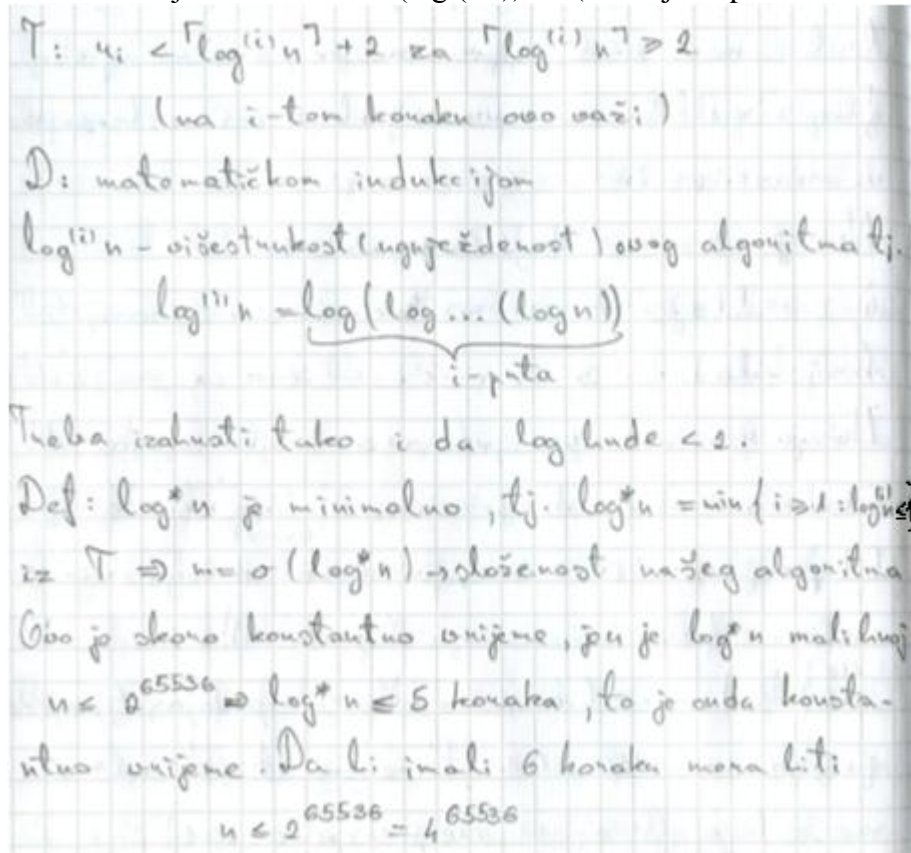 T: n_i < ⌈log^(i) n⌉ + 2 za ⌈log^(i) n⌉ ≥ 2
(na i-tom koraku ovo važi)
D: matematičkom indukcijom
log^(i) n - višestrukost (ugnježdenost) ovog algoritma tj.
log^(i) n = log(log...(log n))
i-puta
Treba izabrati tako i da log bude < 2.
Def: log* n je minimalno, tj. log* n = min{i ≥ 1 : log^(i) n ≤
iz T ⇒ m = o(log* n) → složenost našeg algoritma
Ovo je skoro konstantno vrijeme, jer je log* n mali broj
n ≤ 2^65536 ⇒ log* n ≤ 5 koraka, to je onda konsta-
ntno vrijeme. Da bi imali 6 koraka mora biti
n ≤ 2^65536 = 4^65536